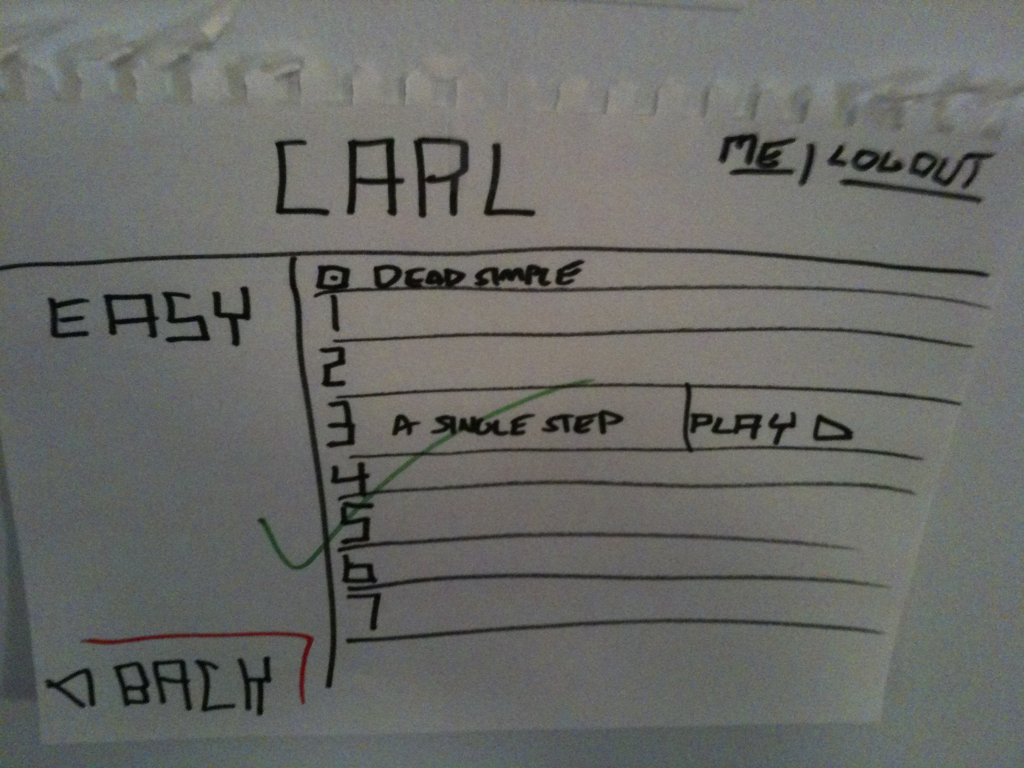 CARL
ME / LOGOUT
EASY
0 DEAD SIMPLE
1
2
3 A SINGLE STEP PLAY ▷
4
5
6
7
◁ BACK